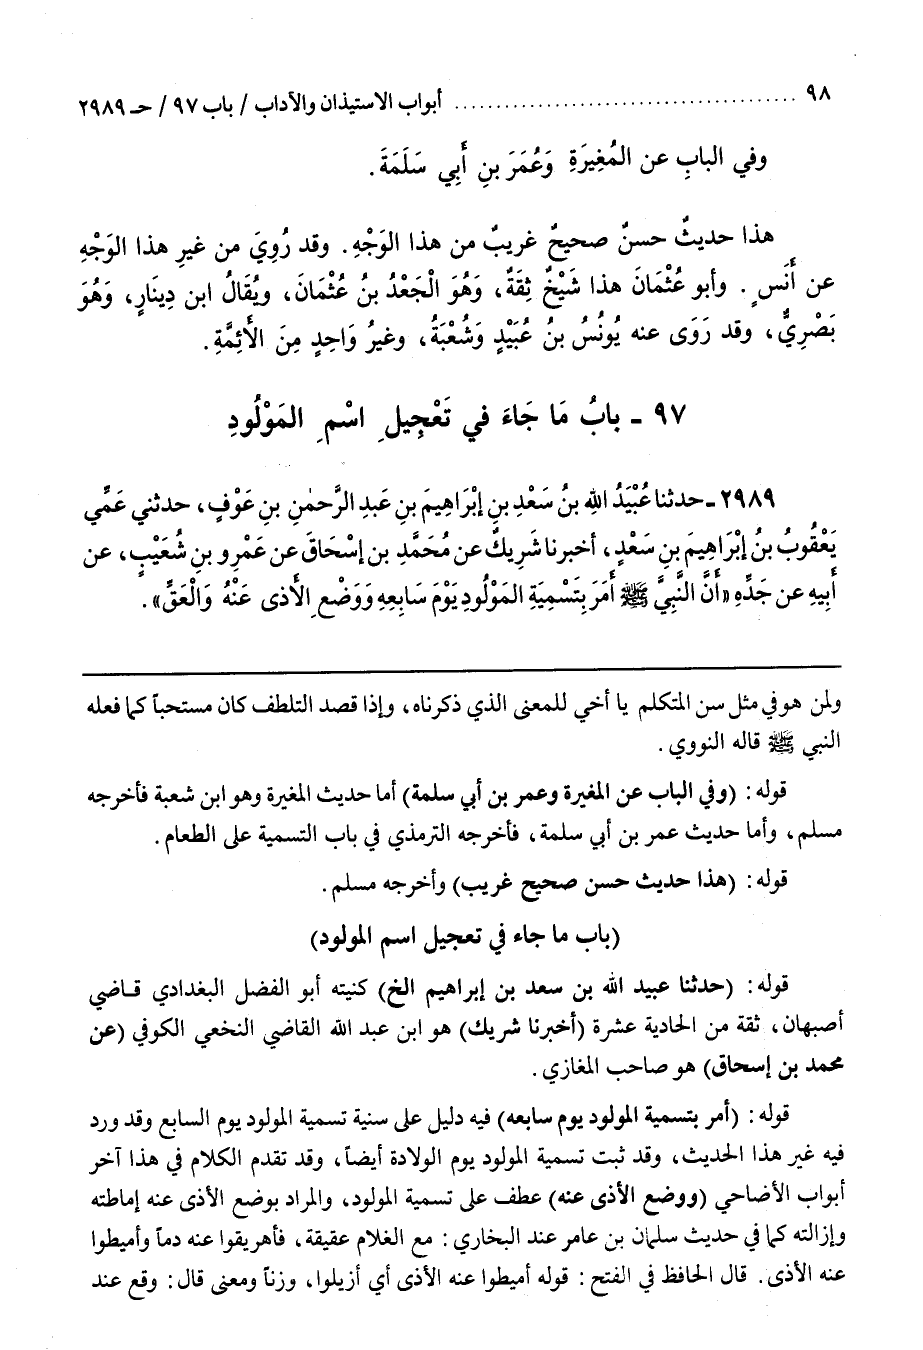 ٩٨ ........................................ أبواب الاستيذان والآداب / باب ٩٧ / حـ ٢٩٨٩
وفي البابِ عن المُغِيَرةِ وَعُمَرَ بنِ أَبِي سَلَمَةَ.
هذا حديثٌ حسنٌ صحيحٌ غريبٌ من هذا الوَجْهِ. وقد رُوِيَ من غيرِ هذا الوَجْهِ
عن أَنَسٍ. وأبو عُثْمَانَ هذا شَيْخٌ ثِقَةٌ، وَهُوَ الْجَعْدُ بنُ عُثْمَانَ، ويُقَالُ ابن دِينَارٍ، وَهُوَ
بَصْرِيٌّ، وقد رَوَى عنه يُونُسُ بنُ عُبَيْدٍ وَشُعْبَةُ، وغيرُ وَاحِدٍ مِنَ الأَئِمَّةِ.
٩٧ ـ بابُ مَا جَاءَ في تَعْجِيلِ اسْمِ المَوْلُودِ
٢٩٨٩ ـ حدثنا عُبَيْدُ اللهِ بنُ سَعْدِ بنِ إبْرَاهِيمَ بنِ عَبدِ الرَّحمٰنِ بنِ عَوْفٍ، حدثني عَمِّي
يَعْقُوبُ بنُ إبْرَاهِيمَ بنِ سَعْدٍ، أخبرنا شَرِيكٌ عن مُحَمَّدِ بنِ إسْحَاقَ عن عَمْرِو بنِ شُعَيْبٍ، عن
أَبِيهِ عن جَدِّهِ «أَنَّ النَّبِيَّ ﷺ أَمَرَ بِتَسْمِيَةِ المَوْلُودِ يَوْمَ سَابِعِهِ وَوَضْعِ الأَذى عَنْهُ وَالْعَقِّ».
ولمن هو في مثل سن المتكلم يا أخي للمعنى الذي ذكرناه، وإذا قصد التلطف كان مستحباً كما فعله
النبي ﷺ قاله النووي.
قوله: (وفي الباب عن المغيرة وعمر بن أبي سلمة) أما حديث المغيرة وهو ابن شعبة فأخرجه
مسلم، وأما حديث عمر بن أبي سلمة، فأخرجه الترمذي في باب التسمية على الطعام.
قوله: (هذا حديث حسن صحيح غريب) وأخرجه مسلم.
(باب ما جاء في تعجيل اسم المولود)
قوله: (حدثنا عبيد الله بن سعد بن إبراهيم الخ) كنيته أبو الفضل البغدادي قاضي
أصبهان، ثقة من الحادية عشرة (أخبرنا شريك) هو ابن عبد الله القاضي النخعي الكوفي (عن
محمد بن إسحاق) هو صاحب المغازي.
قوله: (أمر بتسمية المولود يوم سابعه) فيه دليل على سنية تسمية المولود يوم السابع وقد ورد
فيه غير هذا الحديث، وقد ثبت تسمية المولود يوم الولادة أيضاً، وقد تقدم الكلام في هذا آخر
أبواب الأضاحي (ووضع الأذى عنه) عطف على تسمية المولود، والمراد بوضع الأذى عنه إماطته
وإزالته كما في حديث سلمان بن عامر عند البخاري: مع الغلام عقيقة، فأهريقوا عنه دماً وأميطوا
عنه الأذى. قال الحافظ في الفتح: قوله أميطوا عنه الأذى أي أزيلوا، وزناً ومعنى قال: وقع عند